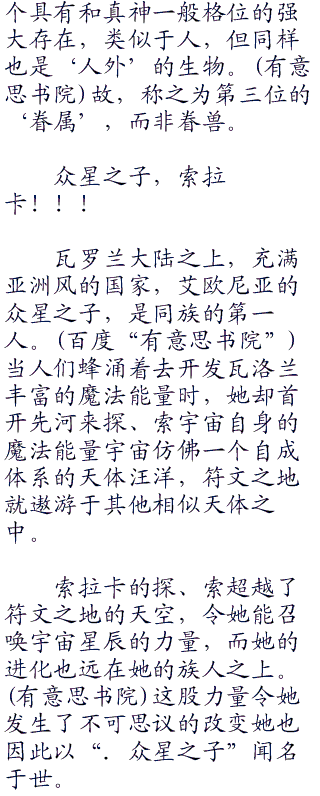 个具有和真神一般格位的强
大存在，类似于人，但同样
也是‘人外’的生物。(有意
思书院)故，称之为第三位的
‘眷属’，而非眷兽。
众星之子，索拉
卡！！！
瓦罗兰大陆之上，充满
亚洲风的国家，艾欧尼亚的
众星之子，是同族的第一
人。(百度“有意思书院”)
当人们蜂涌着去开发瓦洛兰
丰富的魔法能量时，她却首
开先河来探、索宇宙自身的
魔法能量宇宙仿佛一个自成
体系的天体汪洋，符文之地
就遨游于其他相似天体之
中。
索拉卡的探、索超越了
符文之地的天空，令她能召
唤宇宙星辰的力量，而她的
进化也远在她的族人之上。
(有意思书院)这股力量令她
发生了不可思议的改变她也
因此以“．众星之子”闻名
于世。